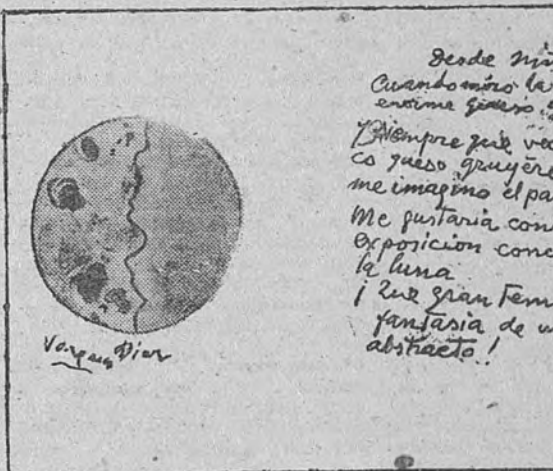 Desde niñ
Cuando miro la
enorme queso.
Siempre que veo
co queso gruyère
me imagino el pa
Me gustaria con
exposicion con
la luna
¡Que gran tem
fantasia de u
abstracto!
Vazquez Diaz